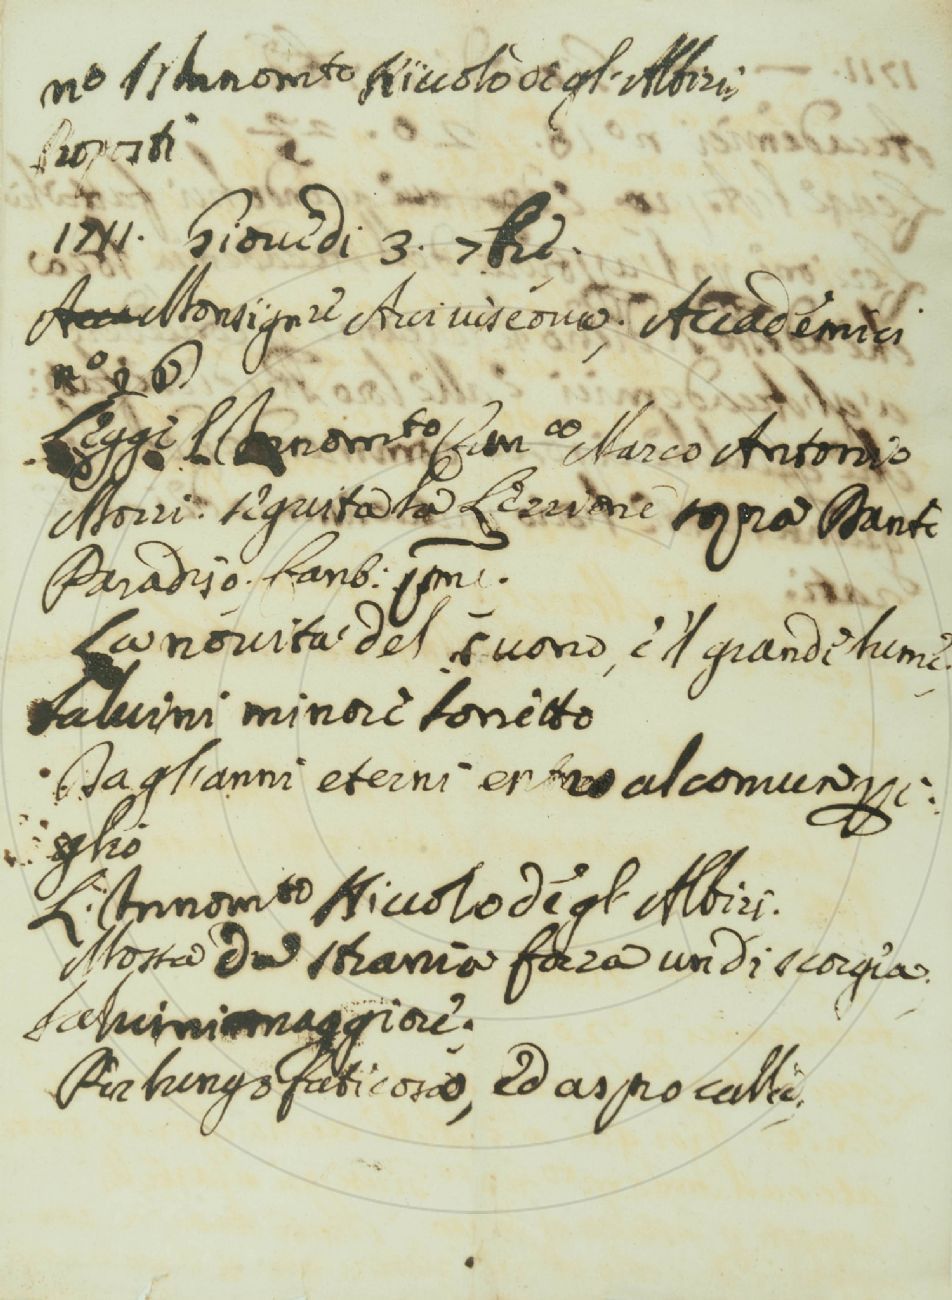 no Innom.to Niccolò degl' Albizi
Proposti
1711. Giovedì 3. 7bre.
Monsignre Arcivescovo; Accademici
no
Leggè l'Innom.to Can.co Marco Antonio
Mozzi. seguita la Lezzione sopra Dante
Paradiso. Cant: pmo.
La novità del suono, e'l grande lume.
Salvini minore sonetto
Dagl'anni eterni entro al comune pi:
glio
L'Innom.to Niccolò degl' Albizi.
Mossa da strania forza un dì scorgia.
Salvini maggiore.
Per lungo faticoso, ed aspro calle.